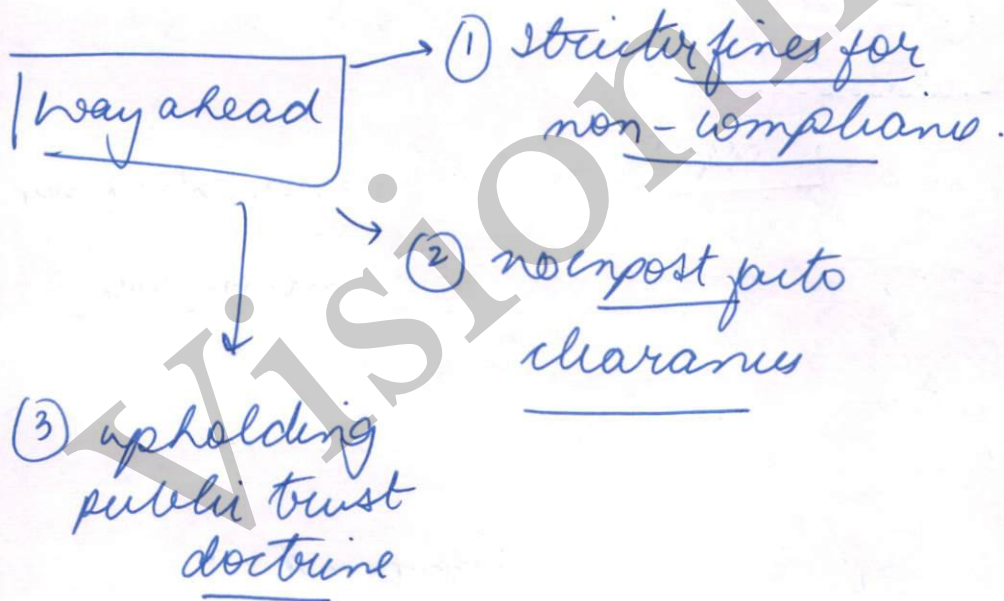 way ahead
① stricter fines for
non-compliance.
② no expost facto
clearances
③ upholding
public trust
doctrine
Vision